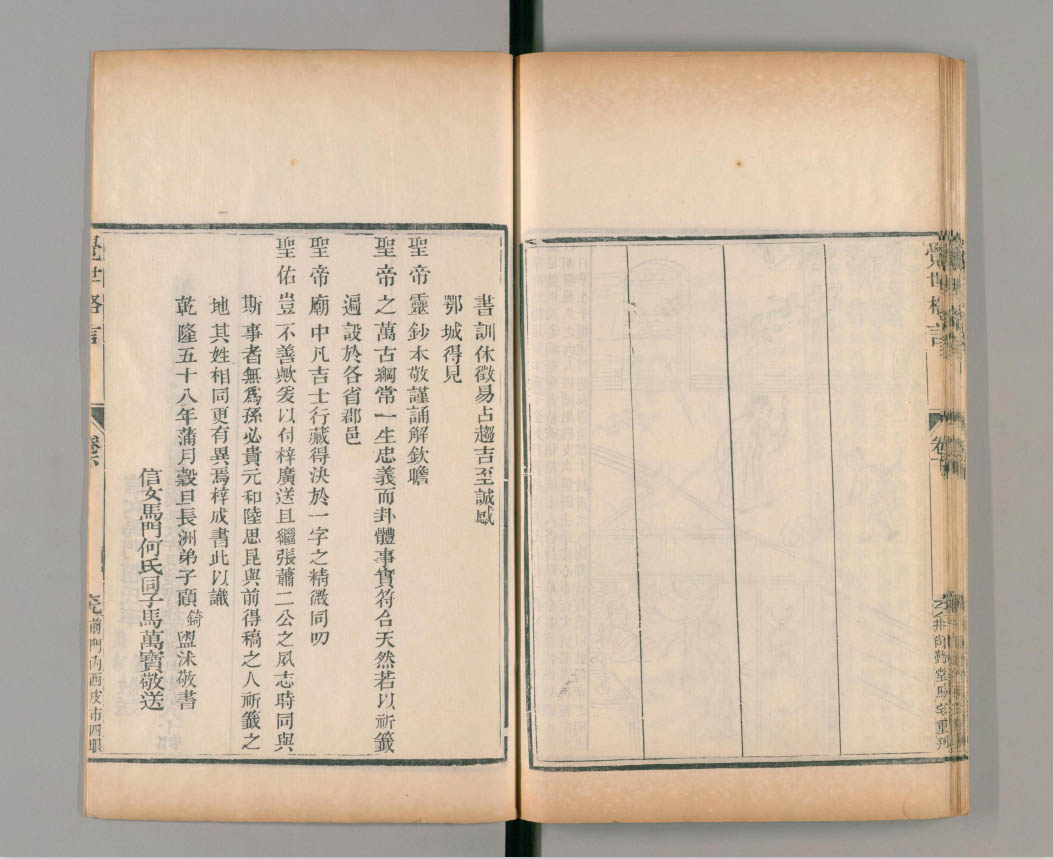 覺世格言
卷
井尙勤堂馬宅重刋
書訓休徵易占趨吉至誠感
鄂城得見
聖帝靈鈔本敬謹誦解欽瞻
聖帝之萬古綱常一生忠義而卦體事實符合天然若以祈籤
遍設於各省郡邑
聖帝廟中凡吉士行藏得決於一字之精微同叨
聖佑豈不善歟爰以付梓廣送且繼張蕭二公之夙志時同與
斯事者無爲孫必貴元和陸思昆與前得稿之人祈籤之
地其姓相同更有異焉梓成書此以識
乾隆五十八年蒲月穀旦長洲弟子顧錡盥沐敬書
信女馬門何氏同子馬萬寶敬送
覺世格言
卷
前門內西皮市四眼